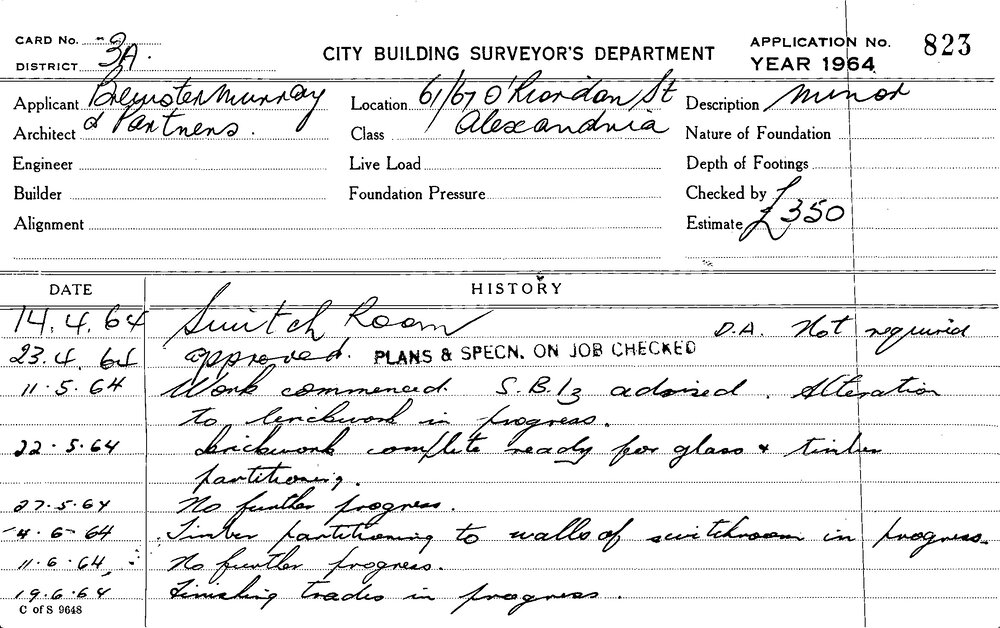 CARD No. 3A.
DISTRICT
CITY BUILDING SURVEYOR'S DEPARTMENT
APPLICATION No. 823
YEAR 1964
Applicant Brewster Murray
Architect & Partners.
Engineer
Builder
Alignment
Location 61/67 O'Riordan St
Class Alexandria
Live Load
Foundation Pressure
Description Minor
Nature of Foundation
Depth of Footings
Checked by
Estimate £350
DATE HISTORY
14.4.64 Switch Room D.A. Not required
23.4.64 approved. PLANS & SPECN. ON JOB CHECKED
11.5.64 Work commenced. S.B.I3 advised. Alteration
to brickwork in progress.
22.5.64 brickwork complete ready for glass & timber
partitioning.
27.5.64 No further progress.
4.6.64 Timber partitioning to walls of switchroom in progress.
11.6.64 No further progress.
19.6.64 Finishing trades in progress.
C of S 9648